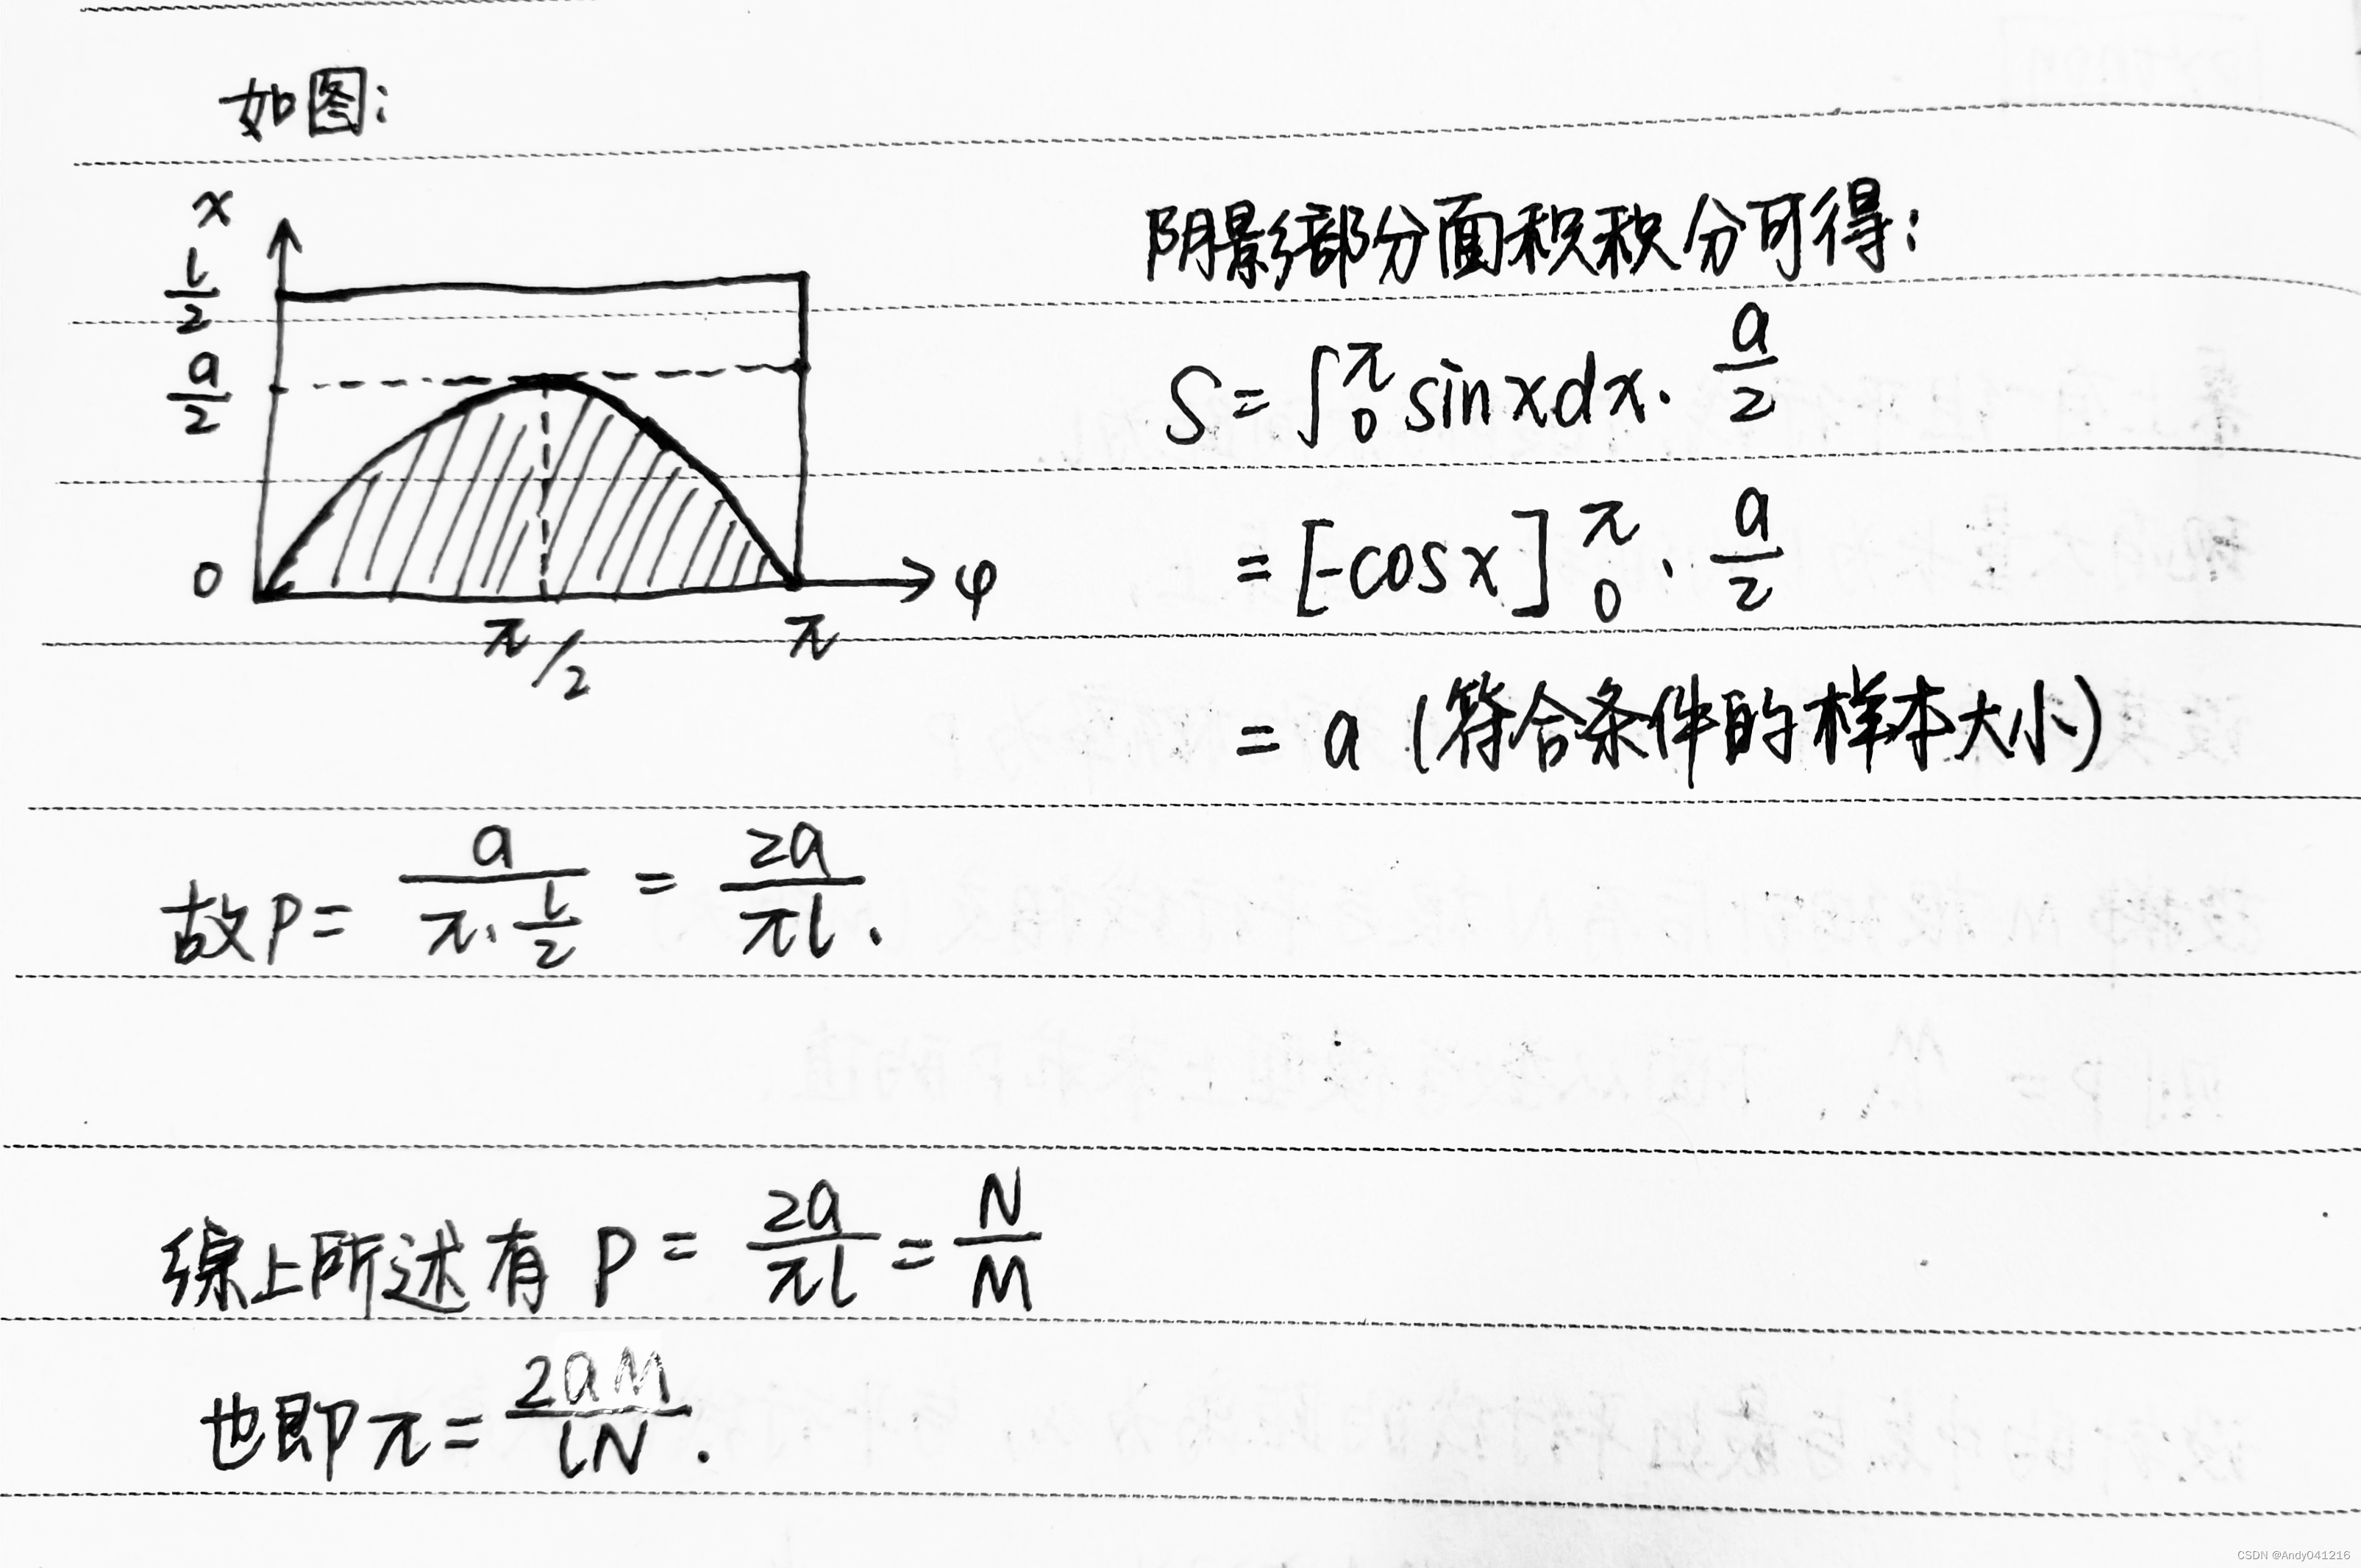 如图:
x
l/2
a/2
0
π/2
π
φ
阴影部分面积积分可得:
S = ∫₀^π sinxdx · a/2
= [-cosx]₀^π · a/2
= a (符合条件的样本大小)
故P = a/(π·l/2) = 2a/πl.
综上所述有 P = 2a/πl = N/M
也即π = 2aM/lN.
CSDN @Andy041216